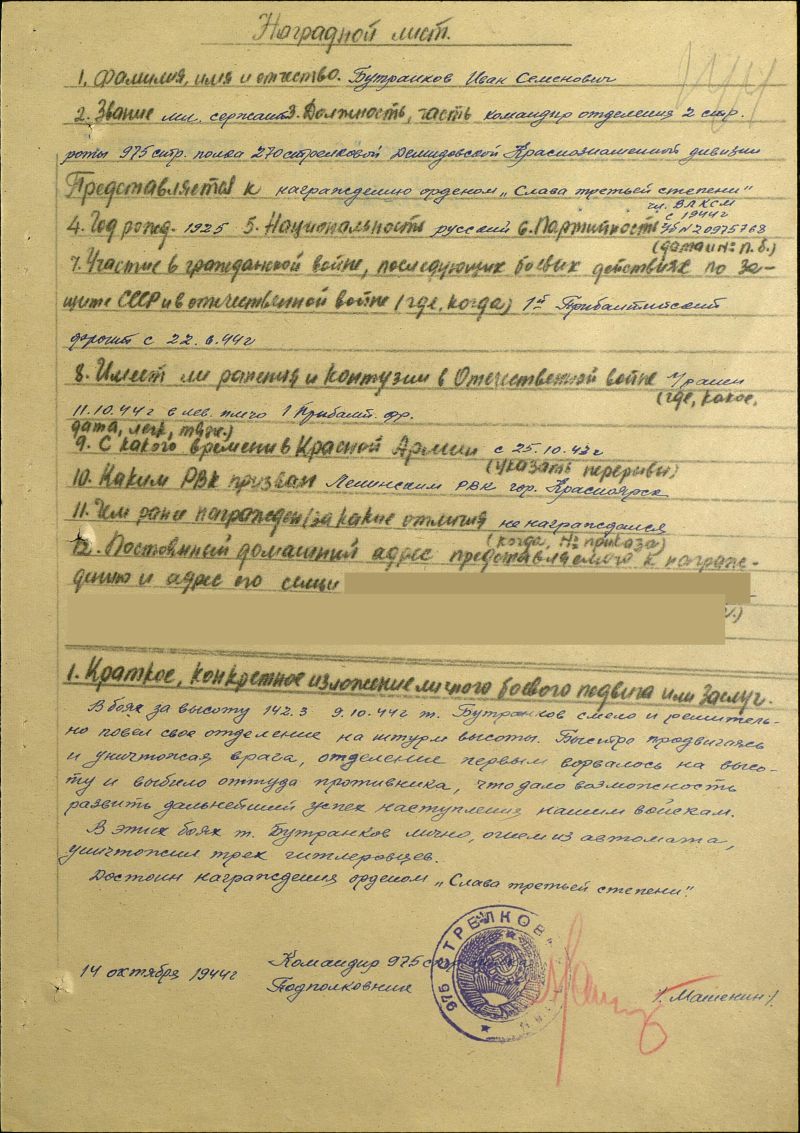 Наградной лист.
1. Фамилия, имя и отчество. Бутранков Иван Семенович
2. Звание мл. сержант 3. Должность, часть командир отделения 2 стр.
роты 975 стр. полка 270 стрелковой Демидовской Краснознаменной дивизии
Представляется к награждению орденом „Слава третьей степени"
чл. ВЛКСМ
с 1944г
4. Год рожд. 1925 5. Национальность русский 6. Партийность ч/б N 20975768
(дата и № п.б.)
7. Участие в гражданской войне, последующих боевых действиях по за-
щите СССР и в отечественной войне (где, когда) 1й Прибалтийский
фронт с 22.6.44г
8. Имеет ли ранения и контузии в Отечественной войне ранен
(где, какое,
11.10.44г в лев. плечо 1 Прибалт. фр.
дата, легк, тяж.)
9. С какого времени в Красной Армии с 25.10.42г
(указать перерывы)
10. Каким РВК призван Ленинским РВК гор. Красноярск
11. Чем ранее награжден (за какие отличия не награждался
(когда, № приказа)
12. Постоянный домашний адрес представляемого к награж-
дению и адрес его семьи
1. Краткое, конкретное изложение личного боевого подвига или заслуг.
В боях за высоту 142.3 9.10.44г т. Бутранков смело и решитель-
но повел свое отделение на штурм высоты. Быстро продвигаясь
и уничтожая врага, отделение первым ворвалось на высо-
ту и выбило оттуда противника, что дало возможность
развить дальнейший успех наступления нашим войскам.
В этих боях т. Бутранков лично, огнем из автомата,
уничтожил трех гитлеровцев.
Достоин награждения орденом „Слава третьей степени".
14 октября 1944г
Командир 975 стр.
Подполковник
/. Машекин /.
975 СТРЕЛКОВ